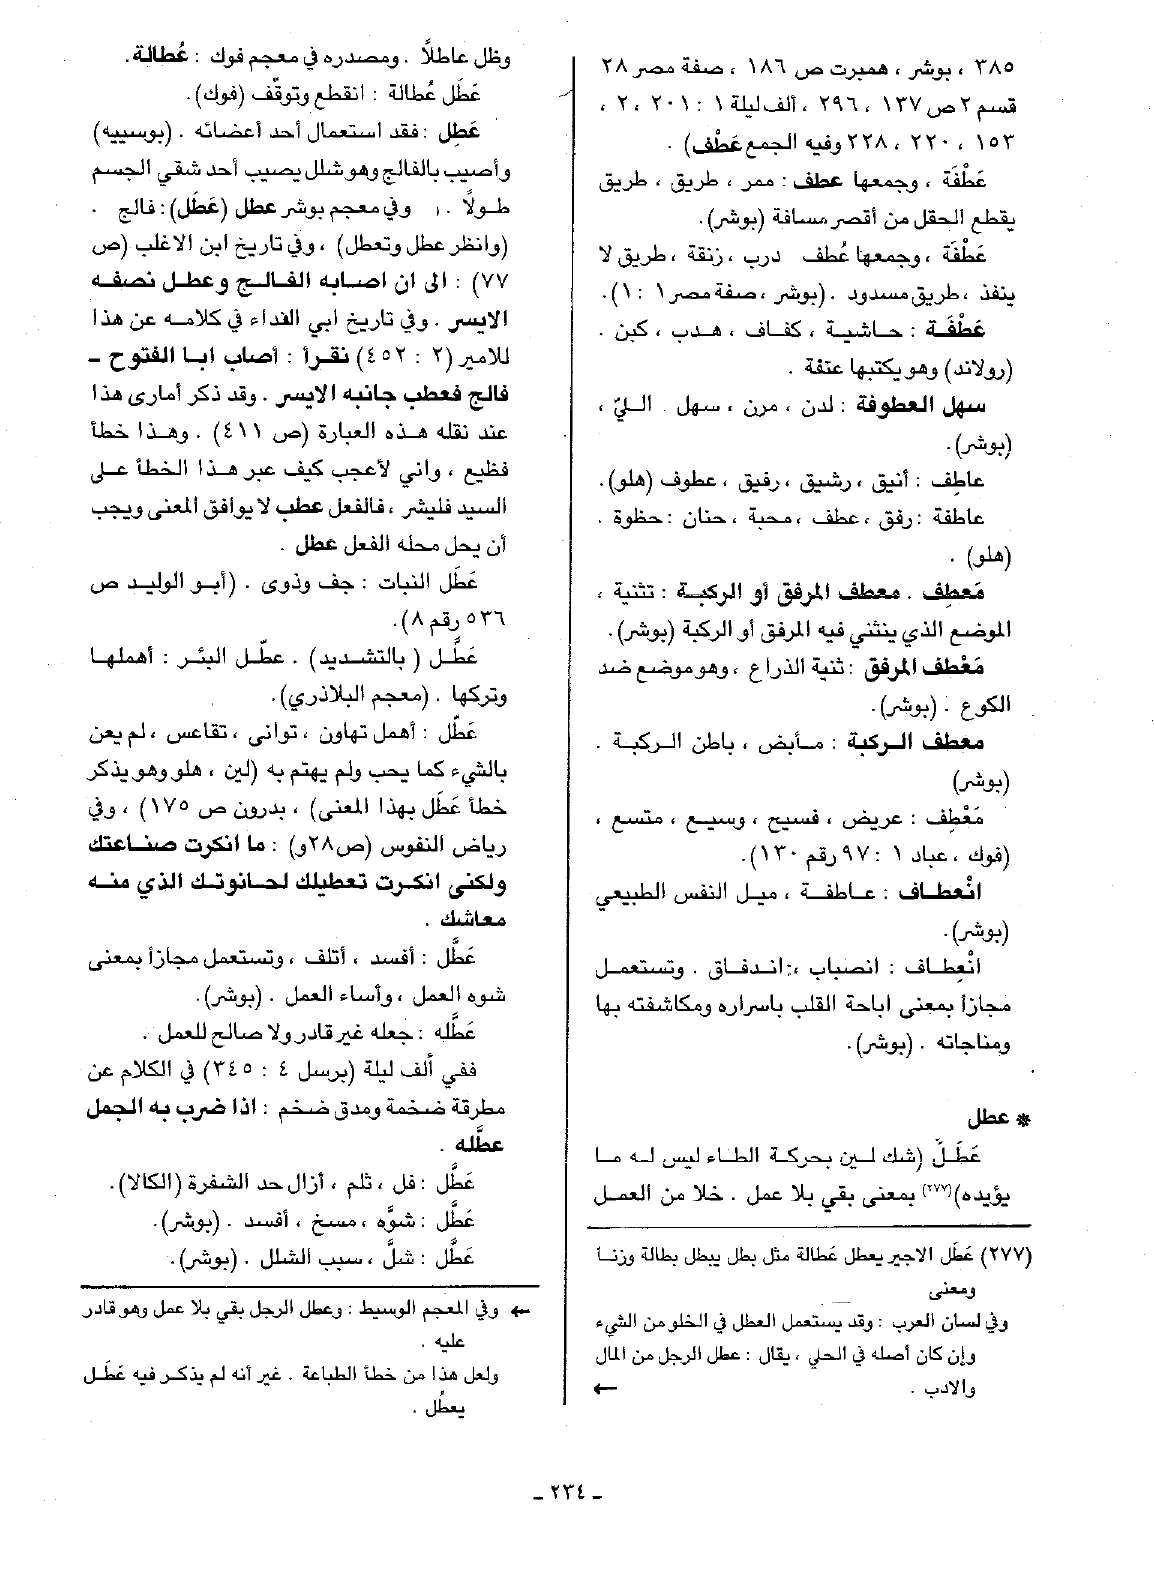 ٣٨٥ ، بوشر ، همبرت ص ١٨٦ ، صفة مصر ٢٨
قسم ٢ ص ١٣٧ ، ٢٩٦ ، ألف ليلة ١ : ٢٠١ ، ٢ ،
١٥٣ ، ٢٢٠ ، ٢٢٨ وفيه الجمع عَطْف) .
عَطْفَة ، وجمعها عطف : ممر ، طريق ، طريق
يقطع الحقل من أقصر مسافة (بوشر).
عَطْفَة ، وجمعها عُطف درب ، زنقة ، طريق لا
ينفذ ، طريق مسدود . (بوشر ، صفة مصر ١ : ١).
عَطْفَة : حاشية ، كفاف ، هدب ، كبن .
(رولاند) وهو يكتبها عتفة .
سهل العطوفة : لدن ، مرن ، سهل الليّ ،
(بوشر).
عاطِف : أنيق ، رشيق ، رفيق ، عطوف (هلو).
عاطفة : رفق ، عطف ، محبة ، حنان : حظوة .
(هلو) .
مَعطِف . معطف المرفق أو الركبة : تثنية ،
الموضع الذي ينثني فيه المرفق أو الركبة (بوشر).
مَعْطف المرفق : ثنية الذراع ، وهو موضع ضد
الكوع . (بوشر).
معطف الركبة : مأبض ، باطن الركبة .
(بوشر)
مَعْطِف : عريض ، فسيح ، وسيع ، متسع ،
(فوك ، عباد ١ : ٩٧ رقم ١٣٠).
انْعطاف : عاطفة ، ميل النفس الطبيعي
(بوشر).
انْعِطاف : انصباب ، اندفاق . وتستعمل
مجازاً بمعنى اباحة القلب باسراره ومكاشفته بها
ومناجاته . (بوشر).
* عطل
عَطَلَ (شك لين بحركة الطاء ليس له ما
يؤيده)(٢٧٧) بمعنى بقي بلا عمل . خلا من العمل
(٢٧٧) عَطَل الاجير يعطل عَطالة مثل بطل يبطل بطالة وزنا
ومعنى
وفي لسان العرب : وقد يستعمل العطل في الخلو من الشيء
وإن كان أصله في الحلي ، يقال : عطل الرجل من المال
والادب . ←
وظل عاطلاً . ومصدره في معجم فوك : عُطالة.
عَطَل عُطالة : انقطع وتوقّف (فوك).
عَطِل : فقد استعمال أحد أعضائه . (بوسييه)
وأصيب بالفالج وهو شلل يصيب أحد شقي الجسم
طولاً . وفي معجم بوشر عطل (عَطَل): فالج .
(وانظر عطل وتعطل) ، وفي تاريخ ابن الاغلب (ص
٧٧) : الى ان اصابه الفالج وعطل نصفه
الايسر . وفي تاريخ ابي الفداء في كلامه عن هذا
للامير (٢ : ٤٥٢) نقرأ : أصاب ابا الفتوح ـ
فالج فعطب جانبه الايسر . وقد ذكر أماري هذا
عند نقله هذه العبارة (ص ٤١١) . وهذا خطأ
فظيع ، واني لأعجب كيف عبر هذا الخطأ على
السيد فليشر ، فالفعل عطب لا يوافق المعنى ويجب
أن يحل محله الفعل عطل .
عَطَل النبات : جف وذوى . (أبو الوليد ص
٥٣٦ رقم ٨).
عَطَّل (بالتشديد) . عطّل البئر : أهملها
وتركها . (معجم البلاذري).
عَطّل : أهمل تهاون ، توانى ، تقاعس ، لم يعن
بالشيء كما يحب ولم يهتم به (لين ، هلو وهو يذكر
خطأ عَطَل بهذا المعنى) ، بدرون ص ١٧٥) ، وفي
رياض النفوس (ص٢٨و) : ما انكرت صناعتك
ولكني انكرت تعطيلك لحانوتك الذي منه
معاشك .
عَطَّل : أفسد ، أتلف ، وتستعمل مجازاً بمعنى
شوه العمل ، وأساء العمل . (بوشر).
عَطَّله : جعله غير قادر ولا صالح للعمل .
ففي ألف ليلة (برسل ٤ : ٣٤٥) في الكلام عن
مطرقة ضخمة ومدق ضخم : اذا ضرب به الجمل
عطَّله .
عَطَّل : فل ، ثلم ، أزال حد الشفرة (الكالا).
عَطَّل : شوَّه ، مسخ ، أفسد . (بوشر).
عَطَّل : شلَّ ، سبب الشلل . (بوشر).
← وفي المعجم الوسيط : وعطل الرجل بقي بلا عمل وهو قادر
عليه .
ولعل هذا من خطأ الطباعة . غير أنه لم يذكر فيه عَطَل
يعطُل .
ـ ٢٣٤ ـ